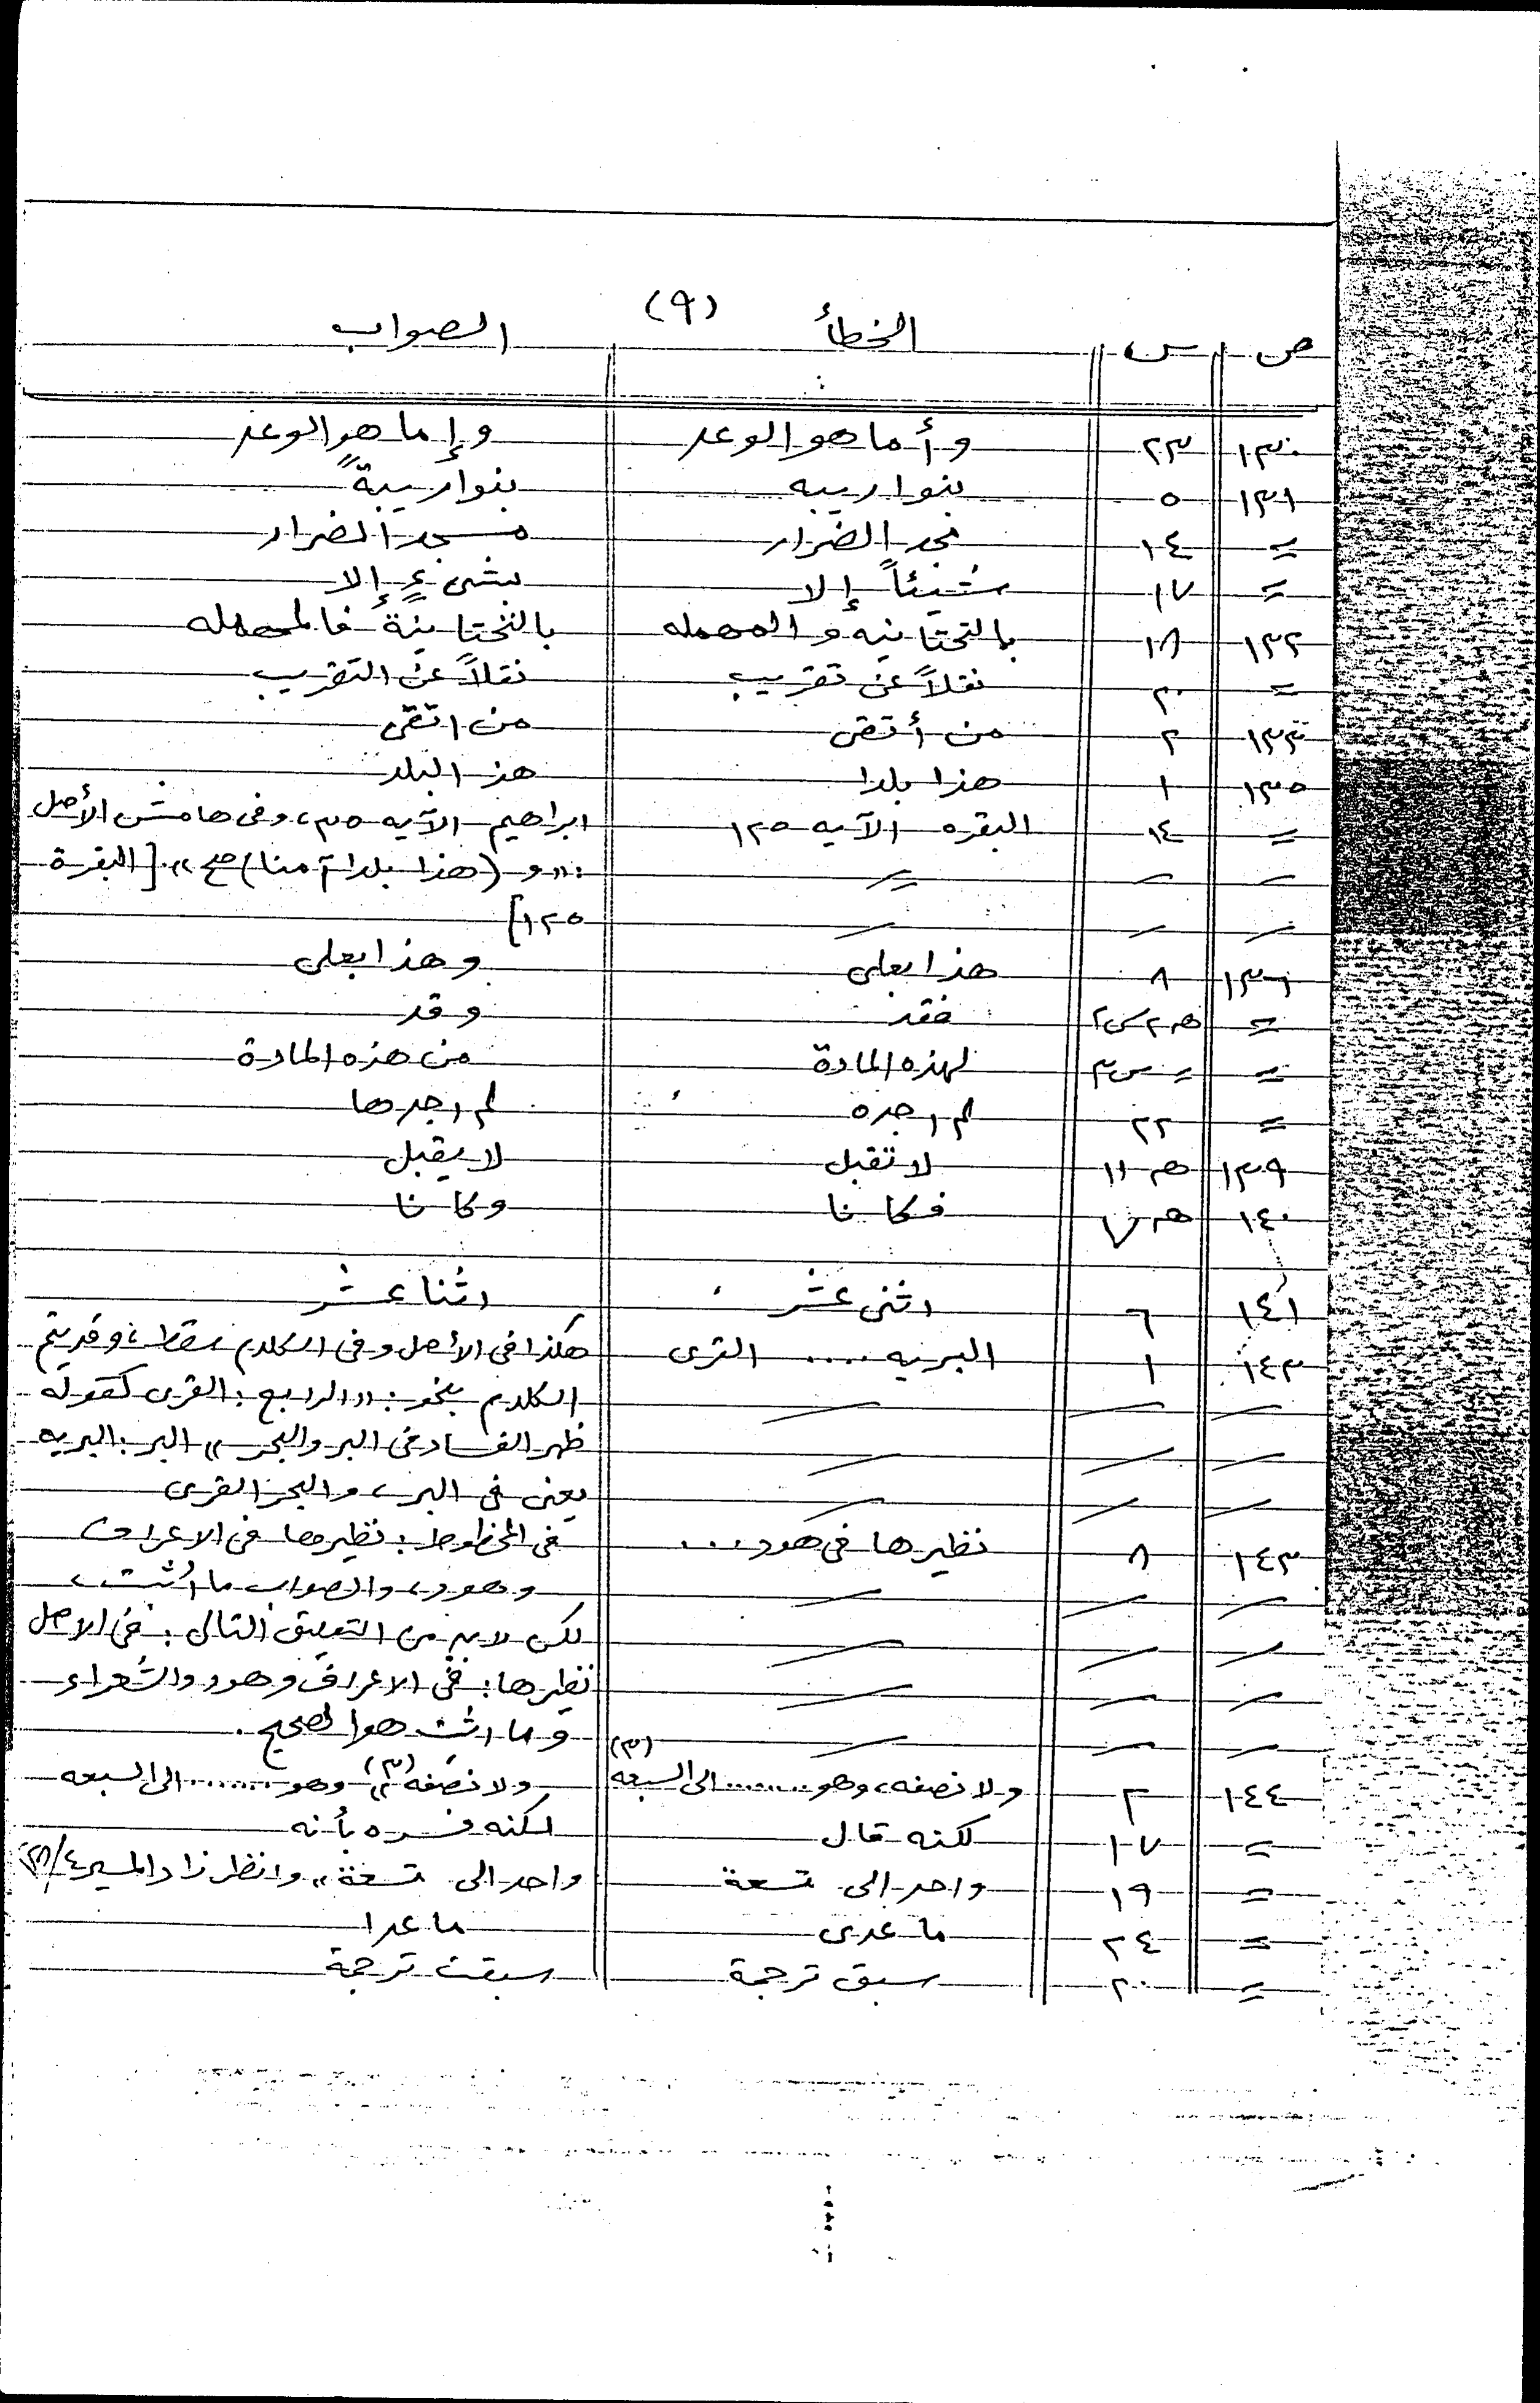 (٩)
ص س الخطأ الصواب
١٣٠ ٢٣ وأما هو الوعد وإما هو الوعد
١٣١ ٥ بنوا ريبه بنوا ريبةً
= ١٤ مجد الضرار مسجد الضرار
= ١٧ شيئاً إلا بشىءٍ إلا
١٣٢ ١٨ بالتحتانيه والمهمله بالتختانية فالمهمله
= ٢٠ نقلاً عن تقريب نقلاً عن التقريب
١٣٣ ٢ من أتقى من اتقى
١٣٥ ١ هذا بلدا هذ البلد
= ١٤ البقره الآيه ١٢٥ ابراهيم الآيه ٣٥، وفى هامش الأصل
— — = : «و (هذا بلدا آمنا) صح». [البقرة
— — — ١٢٥]
١٣٦ ٨ هذا بعلى وهذا بعلى
= هـ ٢ س٢ فقد وقد
= = س٣ لهذه المادة من هذه المادة
= ٢٢ لم اجده لم اجدها
١٣٩ هـ ١١ لا تقبل لا يقبل
١٤٠ هـ ٧ فكانا وكانا
١٤١ ٦ اثنى عشر اثنا عشر
١٤٣ ١ البريه .... القرى هكذا فى الأصل وفى الكلام سقط، وقد يتم
— — — الكلام بنحو: «الرابع: القرى كقوله
— — — ظهر الفساد فى البر والبحر» البر: البريه
— — — يعنى فى البر، والبحر القرى
١٤٣ ٨ نظيرها فى هود ... فى المخطوط: نظيرها فى الاعراف
— — — وهود، والصواب ما أثبت،
— — — لكن لابد من التعليق التالى: فى الاصل
— — — نظيرها: فى الاعراف وهود والشعراء
— — — وما اثبت هو الصحيح.
١٤٤ ٢ ولا نصفه، وهو ........ الى السبعه (٣) ولا نصفه» (٣) وهو ....... الى السبعه
= ١٧ لكنه قال لكنه فسره بأنه
= ١٩ واحد إلى تسعة واحد الى تسعة» وانظر زاد المسير ٤/
= ٢٤ ما عدى ما عدا
= ٢٠ سبق ترجمة سبقت ترجمة